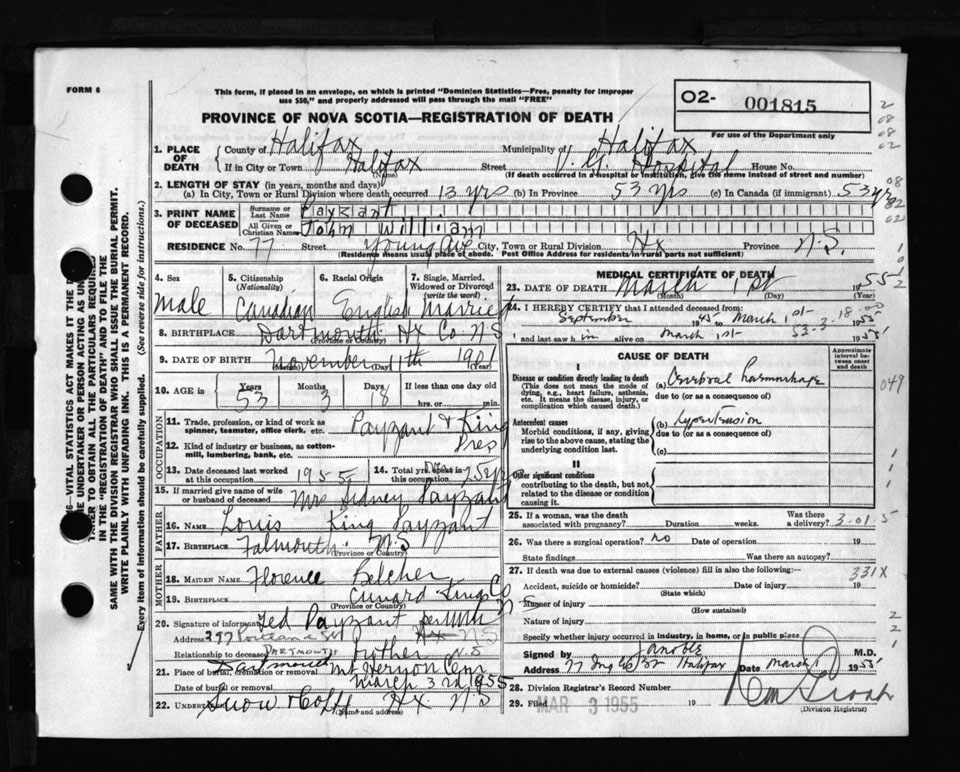 FORM 6
This form, if placed in an envelope, on which is printed "Dominion Statistics—Free, penalty for improper
use $50," and properly addressed will pass through the mail "FREE"
PROVINCE OF NOVA SCOTIA—REGISTRATION OF DEATH
O2- 001815
For use of the Department only
1. PLACE OF DEATH
County of Halifax Municipality of Halifax
If in City or Town Halifax Street V. G. Hospital House No.
(Name) (If death occurred in a hospital or institution, give the name instead of street and number)
2. LENGTH OF STAY (in years, months and days)
(a) In City, Town or Rural Division where death occurred 13 yrs (b) In Province 53 yrs (c) In Canada (if immigrant) 53 yrs
3. PRINT NAME OF DECEASED
Surname or Last Name Payzant
All Given or Christian Names John William
RESIDENCE No. 77 Street Young Ave City, Town or Rural Division Hx Province N.S.
(Residence means usual place of abode. Post Office Address for residents in rural parts not sufficient)
4. Sex
male
5. Citizenship (Nationality)
Canadian
6. Racial Origin
English
7. Single, Married, Widowed or Divorced (write the word)
Married
8. BIRTHPLACE Dartmouth Hx Co N.S
(Province or Country)
9. DATE OF BIRTH November 11th 1901
(Month) (Day) (Year)
10. AGE in
Years Months Days If less than one day old
53 3 18 hrs. or min.
OCCUPATION
11. Trade, profession, or kind of work as spinner, teamster, office clerk, etc. Payzant & King
12. Kind of industry or business, as cotton-mill, lumbering, bank, etc. Pres
13. Date deceased last worked at this occupation 1955
14. Total yrs. spent in this occupation 25 yrs
15. If married give name of wife or husband of deceased Mrs Sidney Payzant
FATHER
16. NAME Louis King Payzant
17. BIRTHPLACE Falmouth N.S
(Province or Country)
MOTHER
18. MAIDEN NAME Florence Belcher
19. BIRTHPLACE Cunard Kings Co
(Province or Country) N S
20. Signature of informant Ted Payzant
Address 397 Portland St Hx N S
DARTMOUTH N.S
Relationship to deceased brother
21. Place of burial, cremation or removal Dartmouth Mt Hermon Cem
Date of burial or removal March 3rd 1955
22. Undertaker Snow & Co Hx N S
(Name and address)
MEDICAL CERTIFICATE OF DEATH
23. DATE OF DEATH March 1st 1955
(Month) (Day) (Year)
24. I HEREBY CERTIFY that I attended deceased from:
September 1945 to March 1st 1955
and last saw him alive on March 1st 1955
53-3-18-00
CAUSE OF DEATH
Approximate interval between onset and death
I
Disease or condition directly leading to death
(This does not mean the mode of dying, e.g., heart failure, asthenia, etc. It means the disease, injury, or complication which caused death.)
(a) Cerebral haemorrhage
due to (or as a consequence of)
Antecedent causes
Morbid conditions, if any, giving rise to the above cause, stating the underlying condition last.
(b) Hypertension
due to (or as a consequence of)
(c)
II
Other significant conditions
contributing to the death, but not related to the disease or condition causing it.
25. If a woman, was the death associated with pregnancy? Duration weeks. Was there a delivery? 3-01 5
26. Was there a surgical operation? no Date of operation 19
State findings Was there an autopsy?
27. If death was due to external causes (violence) fill in also the following:—
331X
Accident, suicide or homicide? Date of injury 19
(State which)
Manner of injury
(How sustained)
Nature of injury
Specify whether injury occurred in industry, in home, or in public place
Signed by M.D.
Address Halifax Date March 1955
28. Division Registrar's Record Number
29. Filed MAR 3 1955 19
(Division Registrar)
049
SAME WITH THE DIVISION REGISTRAR WHO SHALL ISSUE THE BURIAL PERMIT.
WRITE PLAINLY WITH UNFADING INK. THIS IS A PERMANENT RECORD.
Every item of information should be carefully supplied. (See reverse side for instructions.)